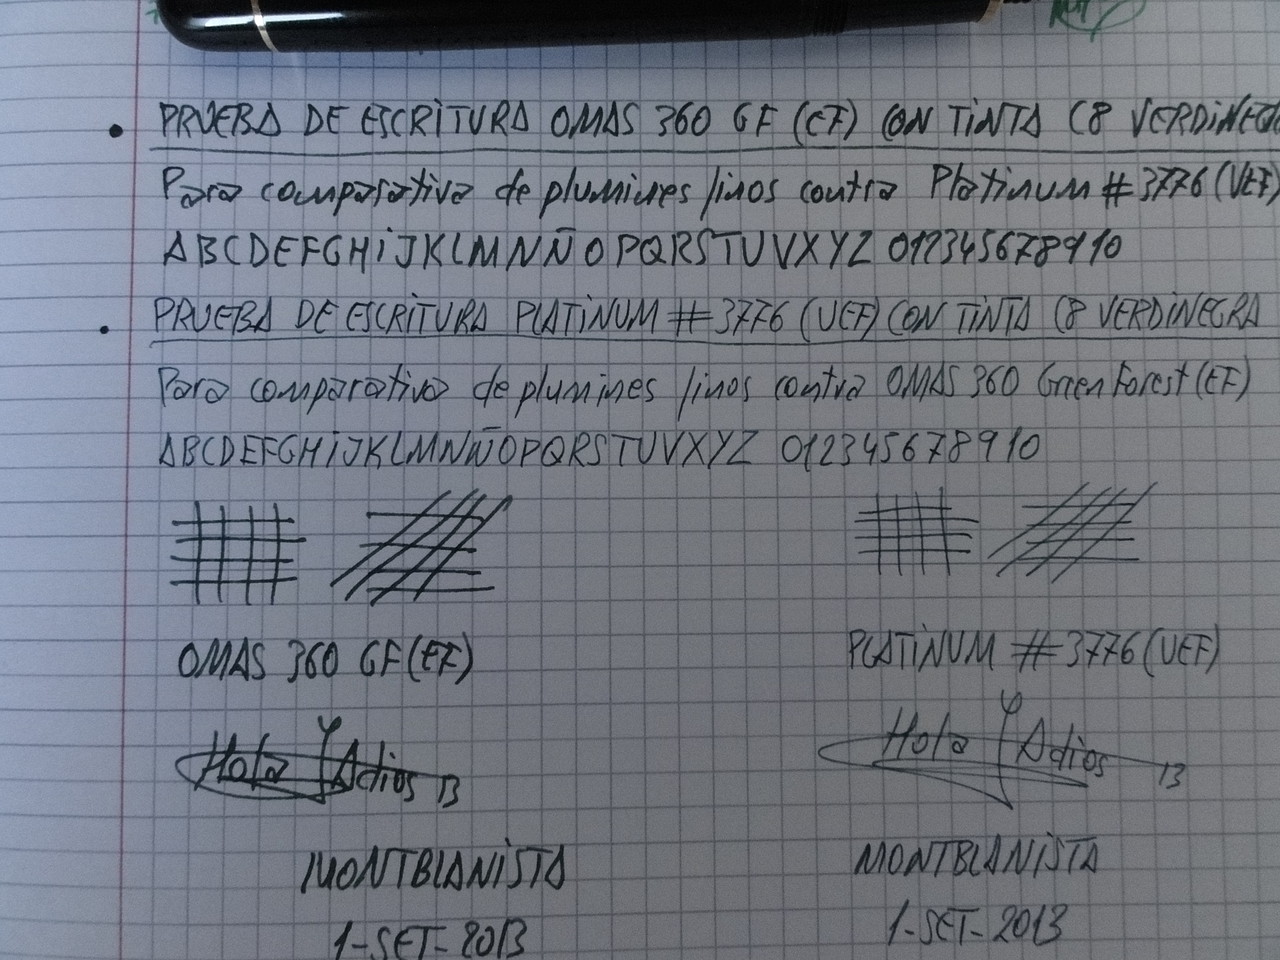 PRUEBA DE ESCRITURA OMAS 360 GF (EF) CON TINTA C8 VERDINEGRA
Para comparativa de plumines finos contra Platinum #3776 (UEF)
ABCDEFGHiJKLMNÑOPQRSTUVXYZ 012345678910
PRUEBA DE ESCRITURA PLATINUM #3776 (UEF) CON TINTA C8 VERDINEGRA
Para comparativa de plumines finos contra OMAS 360 Green Forest (EF)
ABCDEFGHiJKLMNÑOPQRSTUVXYZ 012345678910
OMAS 360 GF (EF)
PLATINUM #3776 (UEF)
Hola y Adios 13
Hola y Adios 13
MONTBLANISTA
MONTBLANISTA
1-SET-2013
1-SET-2013